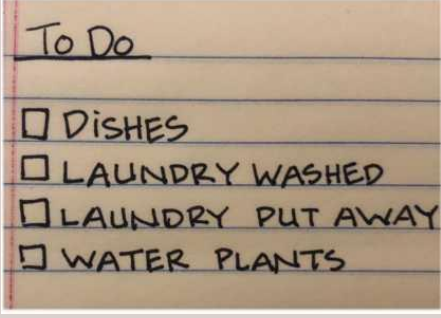 To Do
☐ DiSHES
☐ LAUNDRY WASHED
☐ LAUNDRY PUT AWAY
☐ WATER PLANTS